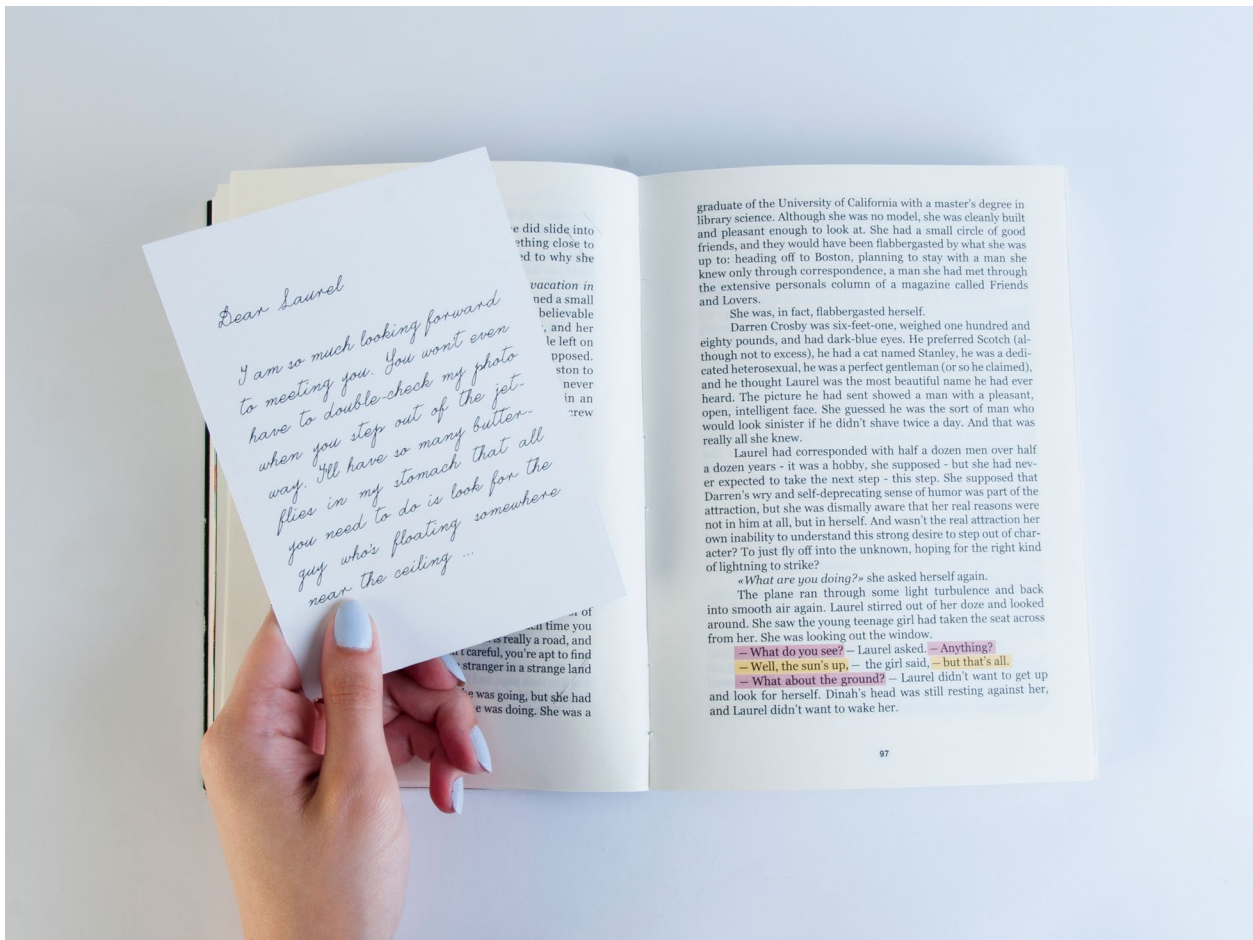 Dear Laurel
I am so much looking forward
to meeting you. You won't even
have to double-check my photo
when you step out of the jet-
way. I'll have so many butter-
flies in my stomach that all
you need to do is look for the
guy who's floating somewhere
near the ceiling ...
did slide into
close to
to why she
vacation in
a small
believable
, and her
left on
to
never
in an
crew
of
time you
is really a road, and
careful, you're apt to find
stranger in a strange land
was going, but she had
was doing. She was a
graduate of the University of California with a master's degree in
library science. Although she was no model, she was cleanly built
and pleasant enough to look at. She had a small circle of good
friends, and they would have been flabbergasted by what she was
up to: heading off to Boston, planning to stay with a man she
knew only through correspondence, a man she had met through
the extensive personals column of a magazine called Friends
and Lovers.
She was, in fact, flabbergasted herself.
Darren Crosby was six-feet-one, weighed one hundred and
eighty pounds, and had dark-blue eyes. He preferred Scotch (al-
though not to excess), he had a cat named Stanley, he was a dedi-
cated heterosexual, he was a perfect gentleman (or so he claimed),
and he thought Laurel was the most beautiful name he had ever
heard. The picture he had sent showed a man with a pleasant,
open, intelligent face. She guessed he was the sort of man who
would look sinister if he didn't shave twice a day. And that was
really all she knew.
Laurel had corresponded with half a dozen men over half
a dozen years - it was a hobby, she supposed - but she had nev-
er expected to take the next step - this step. She supposed that
Darren's wry and self-deprecating sense of humor was part of the
attraction, but she was dismally aware that her real reasons were
not in him at all, but in herself. And wasn't the real attraction her
own inability to understand this strong desire to step out of char-
acter? To just fly off into the unknown, hoping for the right kind
of lightning to strike?
«What are you doing?» she asked herself again.
The plane ran through some light turbulence and back
into smooth air again. Laurel stirred out of her doze and looked
around. She saw the young teenage girl had taken the seat across
from her. She was looking out the window.
– What do you see? – Laurel asked. – Anything?
– Well, the sun's up, – the girl said, – but that's all.
– What about the ground? – Laurel didn't want to get up
and look for herself. Dinah's head was still resting against her,
and Laurel didn't want to wake her.
97